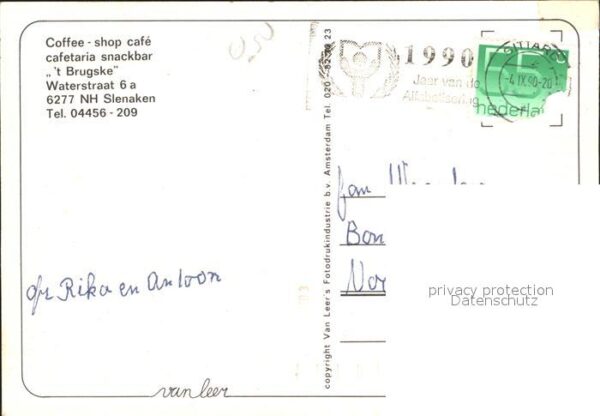 Coffee - shop café
cafetaria snackbar
„'t Brugske"
Waterstraat 6 a
6277 NH Slenaken
Tel. 04456 - 209
0,50
1990
Jaar van de
Alfabetisering
SITTARD
-4.IX.90-20
nederla
copyright Van Leer's Fotodrukindustrie b.v. Amsterdam Tel. 020
23
Jan
Bon
Nor
Rika en Antoon
privacy protection
Datenschutz
van leer